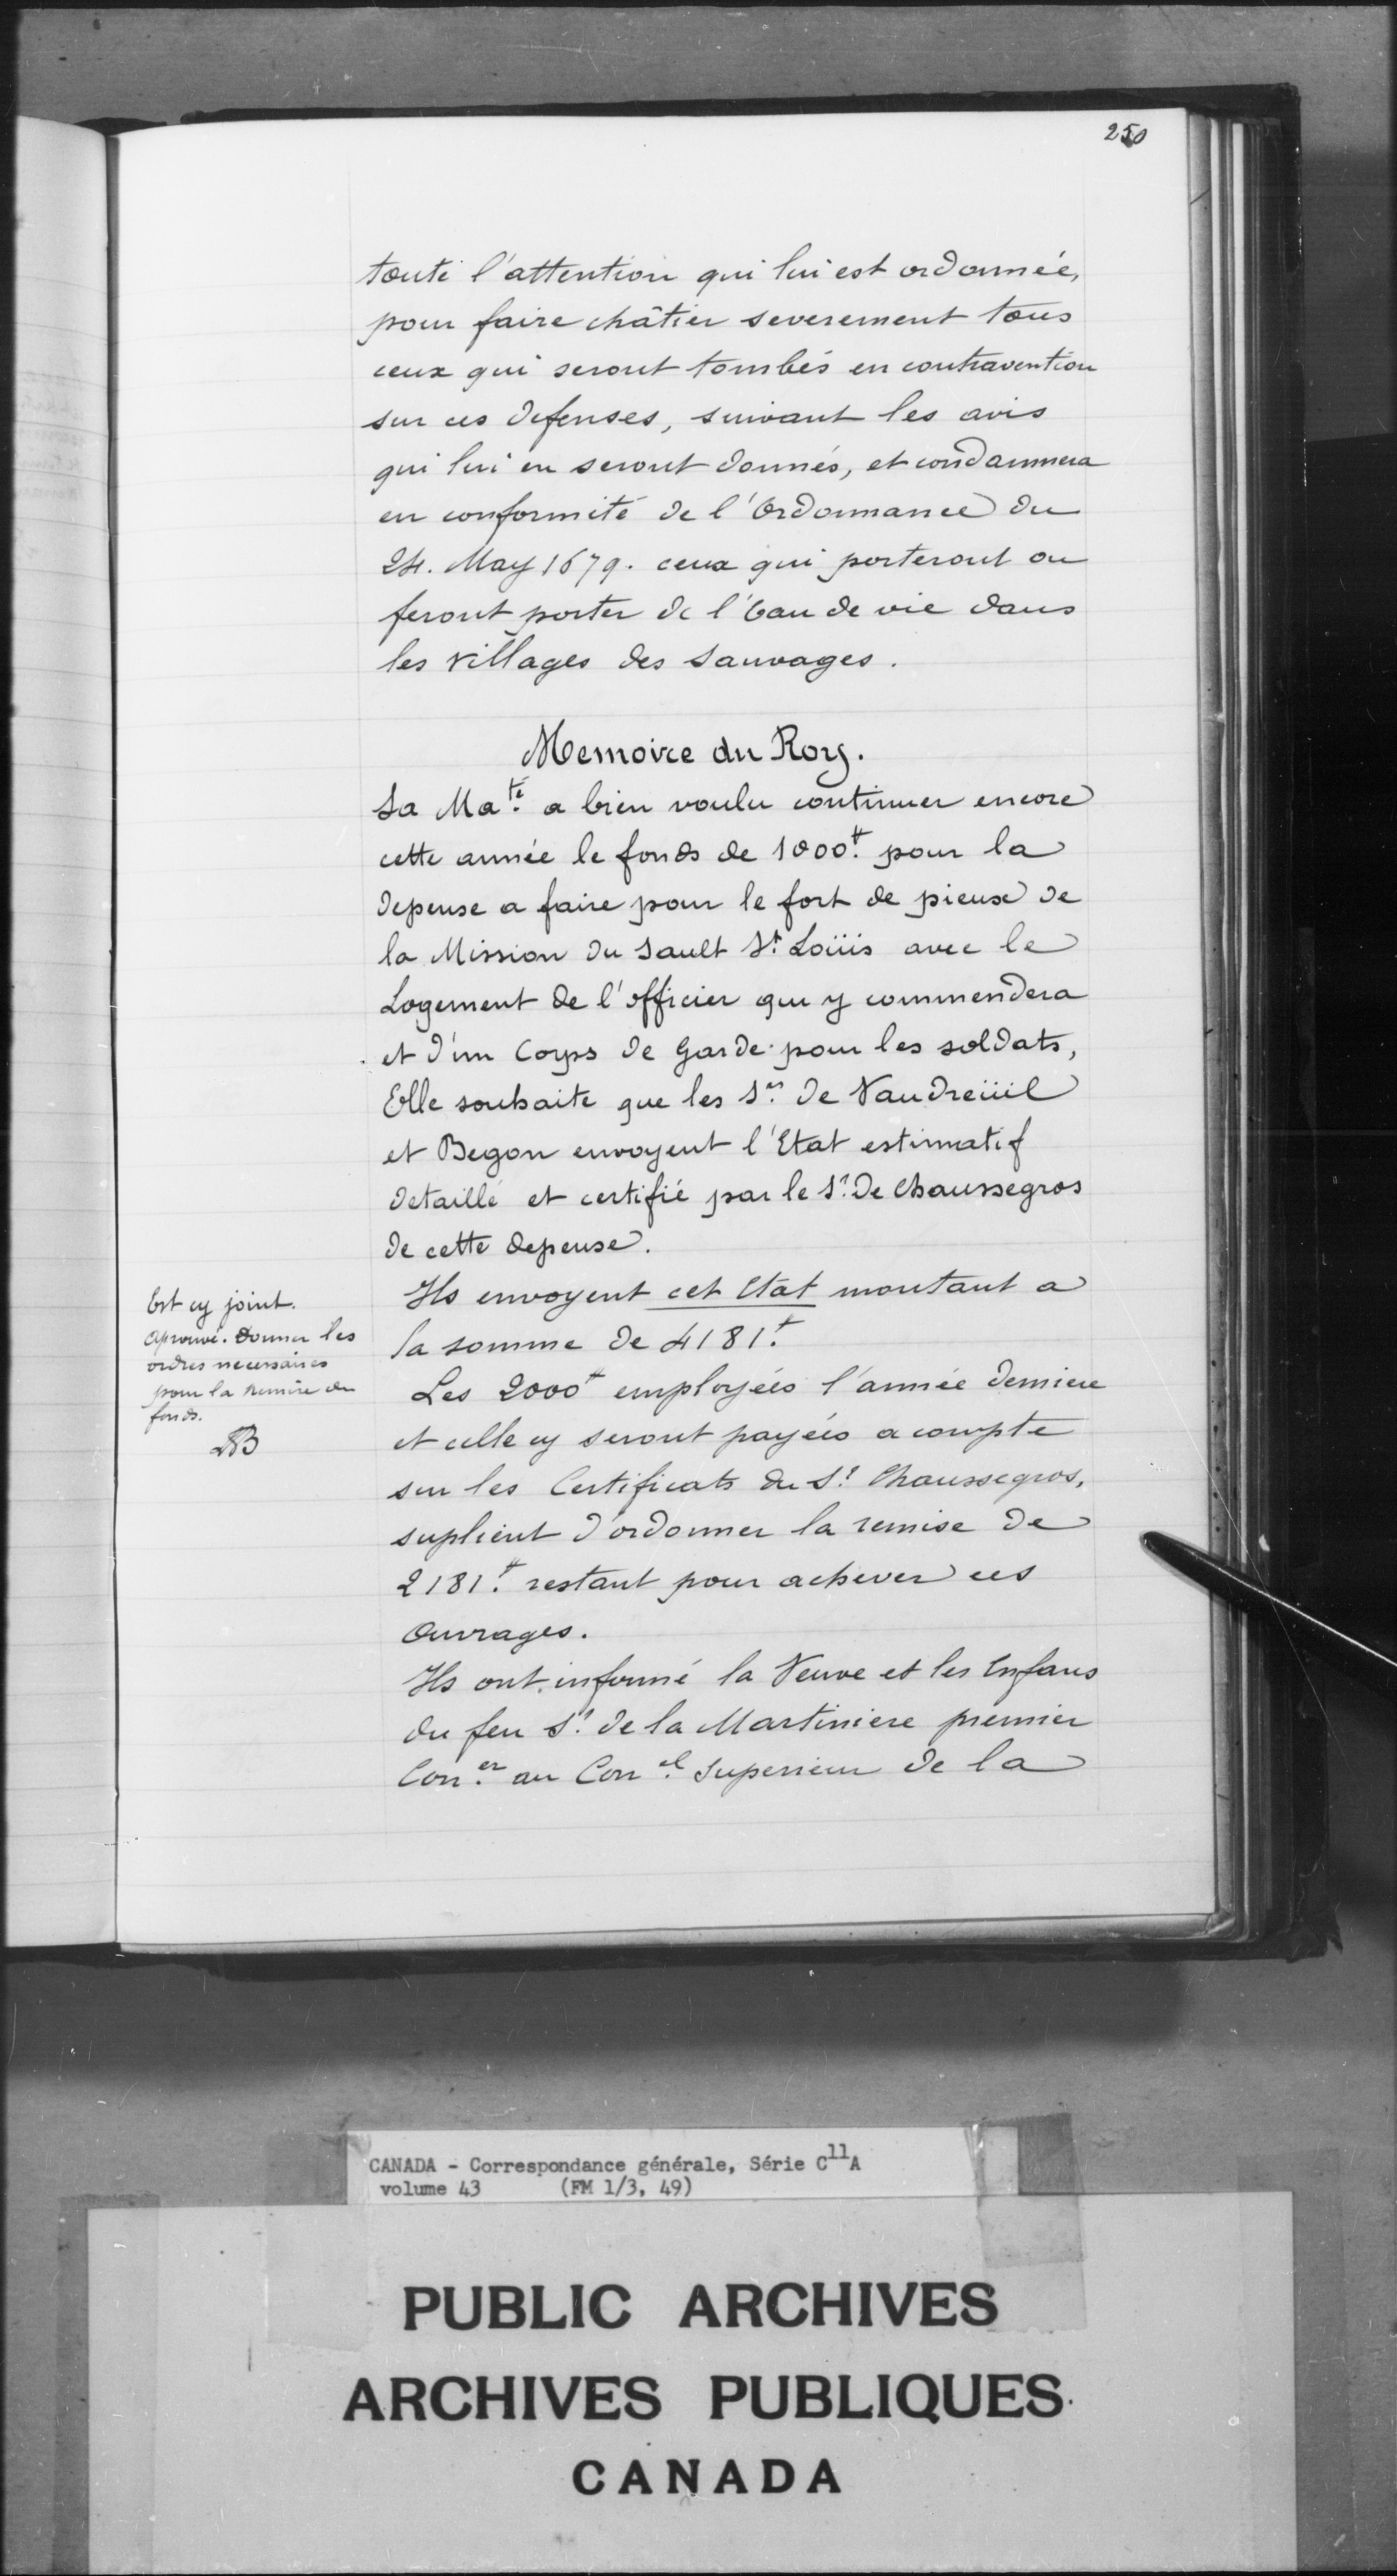 250
toute l'attention qui lui est ordonnée,
pour faire châtier severement tous
ceux qui seront tombés en contravention
sur ces defenses, suivant les avis
qui lui en seront donnés, et condamnera
en conformité de l'Ordonnance du
24. May 1679. ceux qui porteront ou
feront porter de l'Eau de vie dans
les villages des Sauvages.
Memoire du Roy.
Sa Ma.té a bien voulu continuer encore
cette année le fonds de 1000.# pour la
depense a faire pour le fort de pieux de
la Mission du Sault S.t Loüis avec le
Logement de l'officier qui y commendera
et d'un Corps de Garde pour les soldats,
Elle souhaite que les S.rs de Vaudreüil
et Begon envoyent l'Etat estimatif
detaillé et certifié par le S.r De Chaussegros
de cette depense.
Ils envoyent cet Etat montant a
la somme de 4181.#
Les 2000# employées l'année derniere
et celle cy seront payées a compte
sur les Certificats du S.r Chaussegros,
suplient d'ordonner la remise de
2181.# restant pour achever ces
Ouvrages.
Est cy joint.
aprouvé. Donner les
ordres necessaires
pour la remise du
fonds.
LB
Ils ont informé la Veuve et les Enfans
du feu S.r de la Martiniere premier
Con.er au Con.el Superieur de la
CANADA - Correspondance générale, Série C11A
volume 43 (FM 1/3, 49)
PUBLIC ARCHIVES
ARCHIVES PUBLIQUES
CANADA